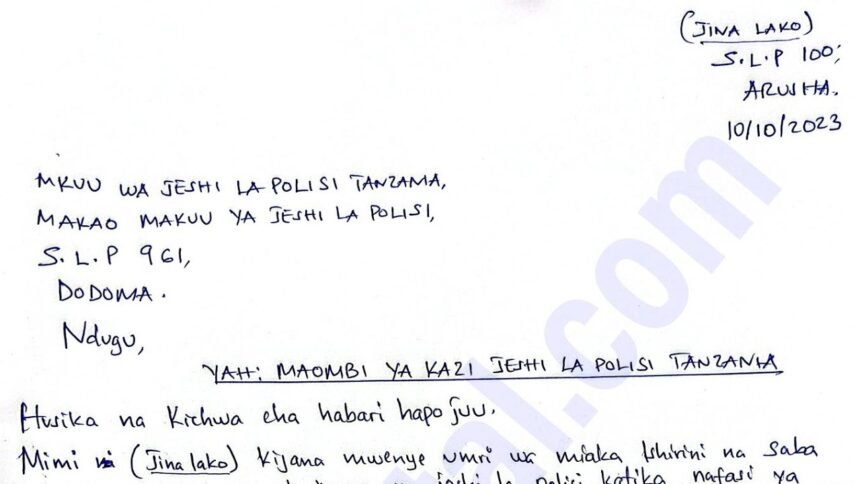 (JINA LAKO)
S.L.P 100,
ARUSHA.
10/10/2023
MKUU WA JESHI LA POLISI TANZAMA,
MAKAO MAKUU YA JESHI LA POLISI,
S.L.P 961,
DODOMA.
Ndugu,
YAH: MAOMBI YA KAZI JESHI LA POLISI TANZANIA
Husika na Kichwa cha habari hapo juu.
Mimi ni (Jina lako) Kijana mwenye umri wa miaka Ishirini na Saba
jeshi la polisi katika nafasi ya
tal.com